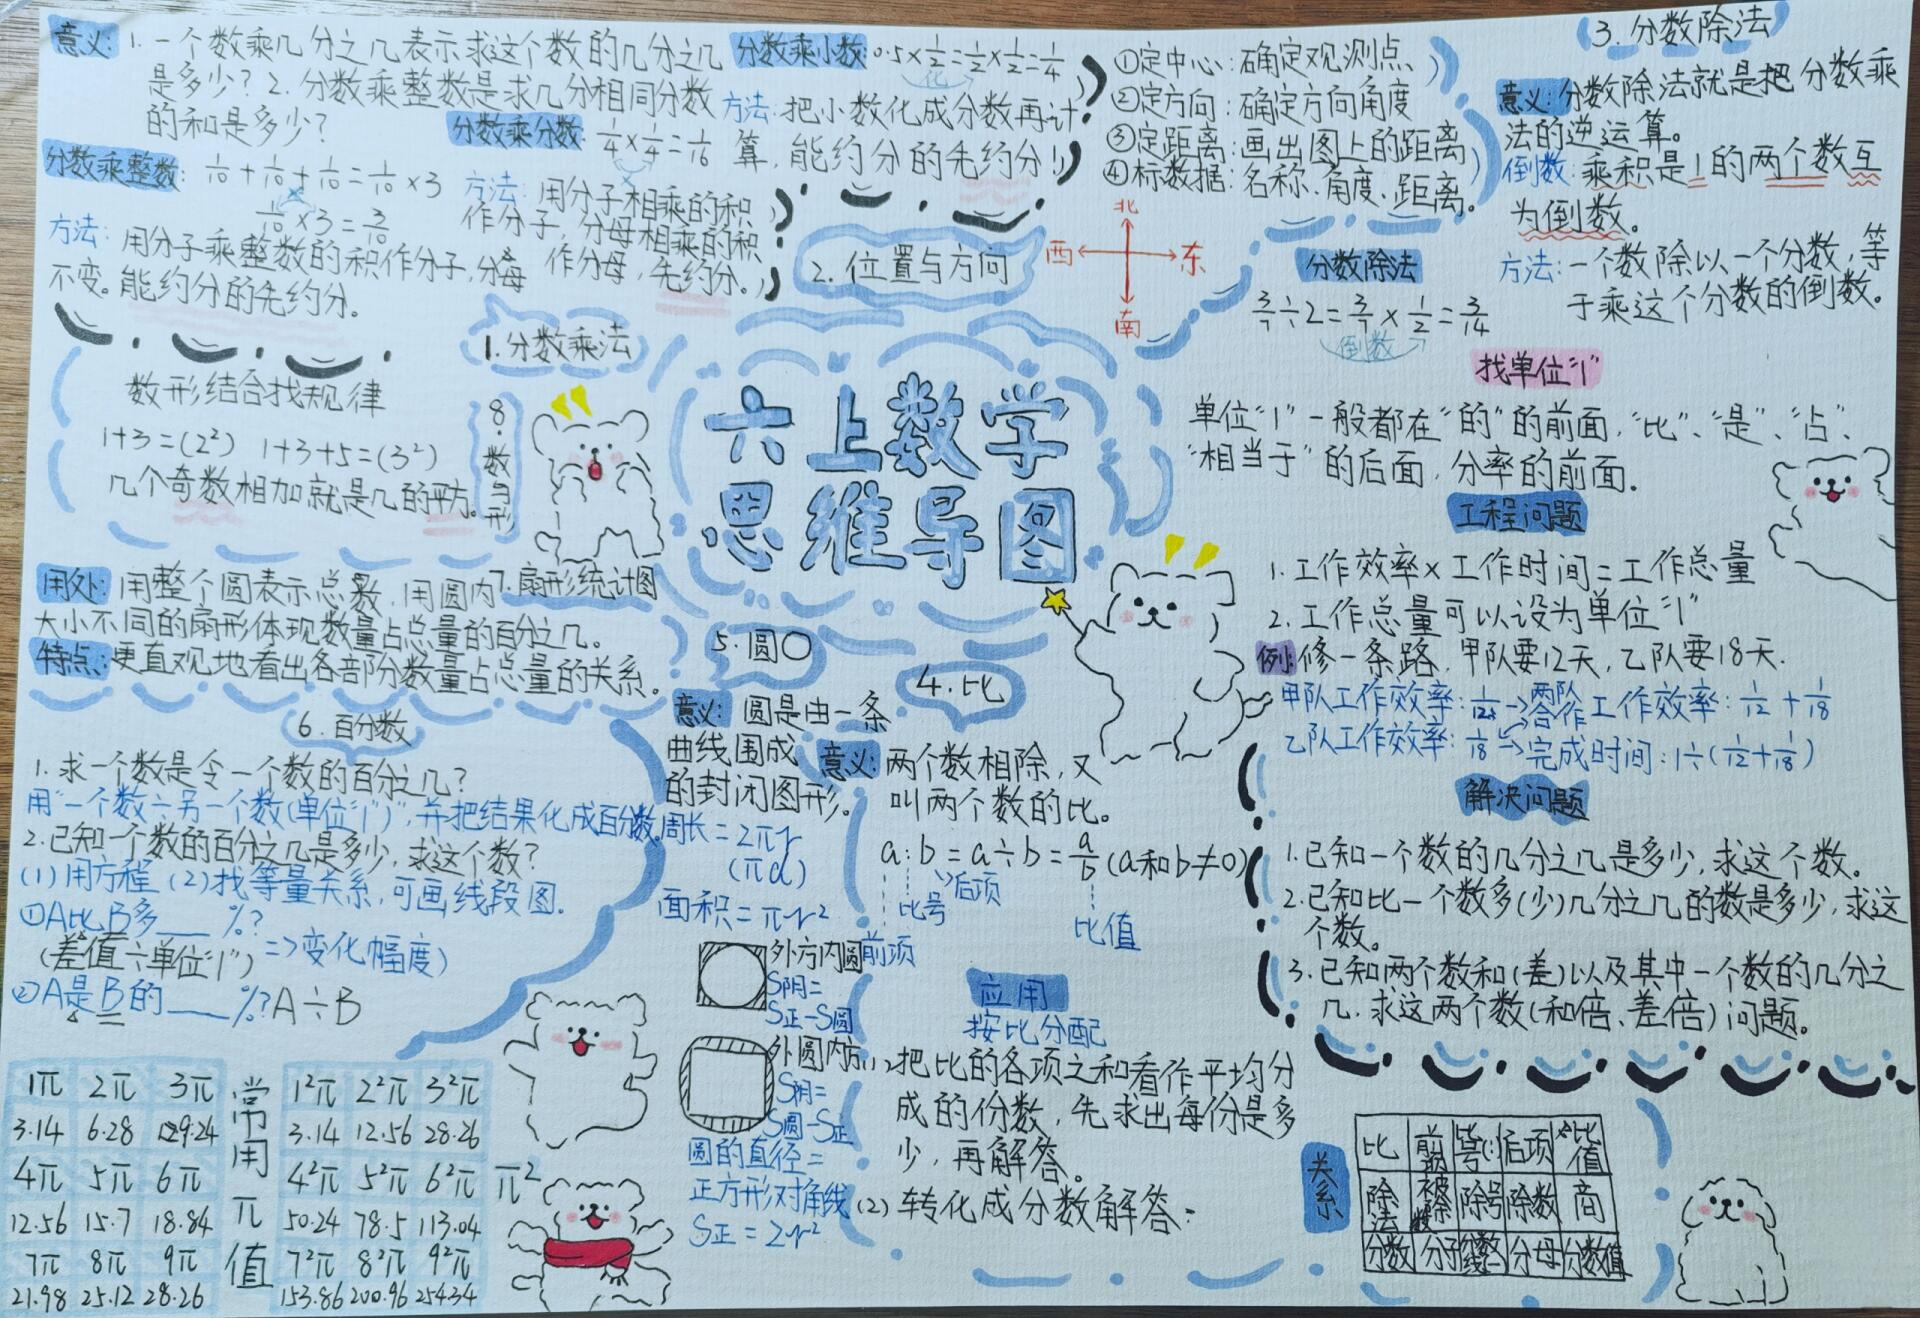 六上数学
思维导图
1.分数乘法
意义:1.一个数乘几分之几表示求这个数的几分之几
是多少?2.分数乘整数是求几分相同分数
的和是多少?
分数乘整数:1/10+1/10+1/10=1/10×3
1/10×3=3/10
方法:用分子乘整数的积作分子,分母
不变。能约分的先约分。
分数乘分数:1/4×1/4=1/16
方法:用分子相乘的积
作分子,分母相乘的积
作分母,先约分。
分数乘小数:0.5×1/2=1/2×1/2=1/4
化
方法:把小数化成分数再计
算,能约分的先约分!
2.位置与方向
①定中心:确定观测点
②定方向:确定方向角度
③定距离:画出图上的距离
④标数据:名称、角度、距离。
北
西
东
南
3.分数除法
意义:分数除法就是把分数乘
法的逆运算。
倒数:乘积是1的两个数互
为倒数。
方法:一个数除以一个分数,等
于乘这个分数的倒数。
分数除法
3/7÷2=3/7×1/2=3/14
倒数
找单位"1"
单位"1"一般都在"的"的前面,"比"、"是"、"占"、
"相当于"的后面,分率的前面。
工程问题
1.工作效率×工作时间=工作总量
2.工作总量可以设为单位"1"
例:修一条路,甲队要12天,乙队要18天.
甲队工作效率:1/12→两队合作工作效率:1/12+1/18
乙队工作效率:1/18→完成时间:1÷(1/12+1/18)
解决问题
1.已知一个数的几分之几是多少,求这个数。
2.已知比一个数多(少)几分之几的数是多少,求这
个数。
3.已知两个数和(差)以及其中一个数的几分之
几.求这两个数(和倍、差倍)问题。
4.比
意义:两个数相除,又
叫两个数的比。
a:b=a÷b=a/b(a和b≠0)
前项
比号
后项
比值
应用
按比分配
(1)把比的各项之和看作平均分
成的份数,先求出每份是多
少,再解答。
(2)转化成分数解答:
关系
比 前项 后项 比值
除法 被除数 除号 除数 商
分数 分子 分数线 分母 分数值
5.圆○
意义:圆是由一条
曲线围成
的封闭图形。
周长=2πr
(πd)
面积=πr²
外方内圆
S阴=
S正-S圆
外圆内方
S阴=
S圆-S正
圆的直径=
正方形对角线
S正=2r²
6.百分数
1.求一个数是令一个数的百分之几?
用"一个数÷另一个数(单位"1")",并把结果化成百分数。
2.已知一个数的百分之几是多少,求这个数?
(1)用方程(2)找等量关系,可画线段图.
①A比B多___%?
(差值÷单位"1")=>变化幅度)
②A是B的___%?A÷B
7.扇形统计图
用处:用整个圆表示总数,用圆内
大小不同的扇形体现数量占总量的百分之几。
特点:更直观地看出各部分数量占总量的关系。
8.数与形
数形结合找规律
1+3=(2²) 1+3+5=(3²)
几个奇数相加就是几的平方。
常用π值
1π 2π 3π
3.14 6.28 9.24
4π 5π 6π
12.56 15.7 18.84
7π 8π 9π
21.98 25.12 28.26
1²π 2²π 3²π
3.14 12.56 28.26
4²π 5²π 6²π π²
50.24 78.5 113.04
7²π 8²π 9²π
153.86 200.96 254.34